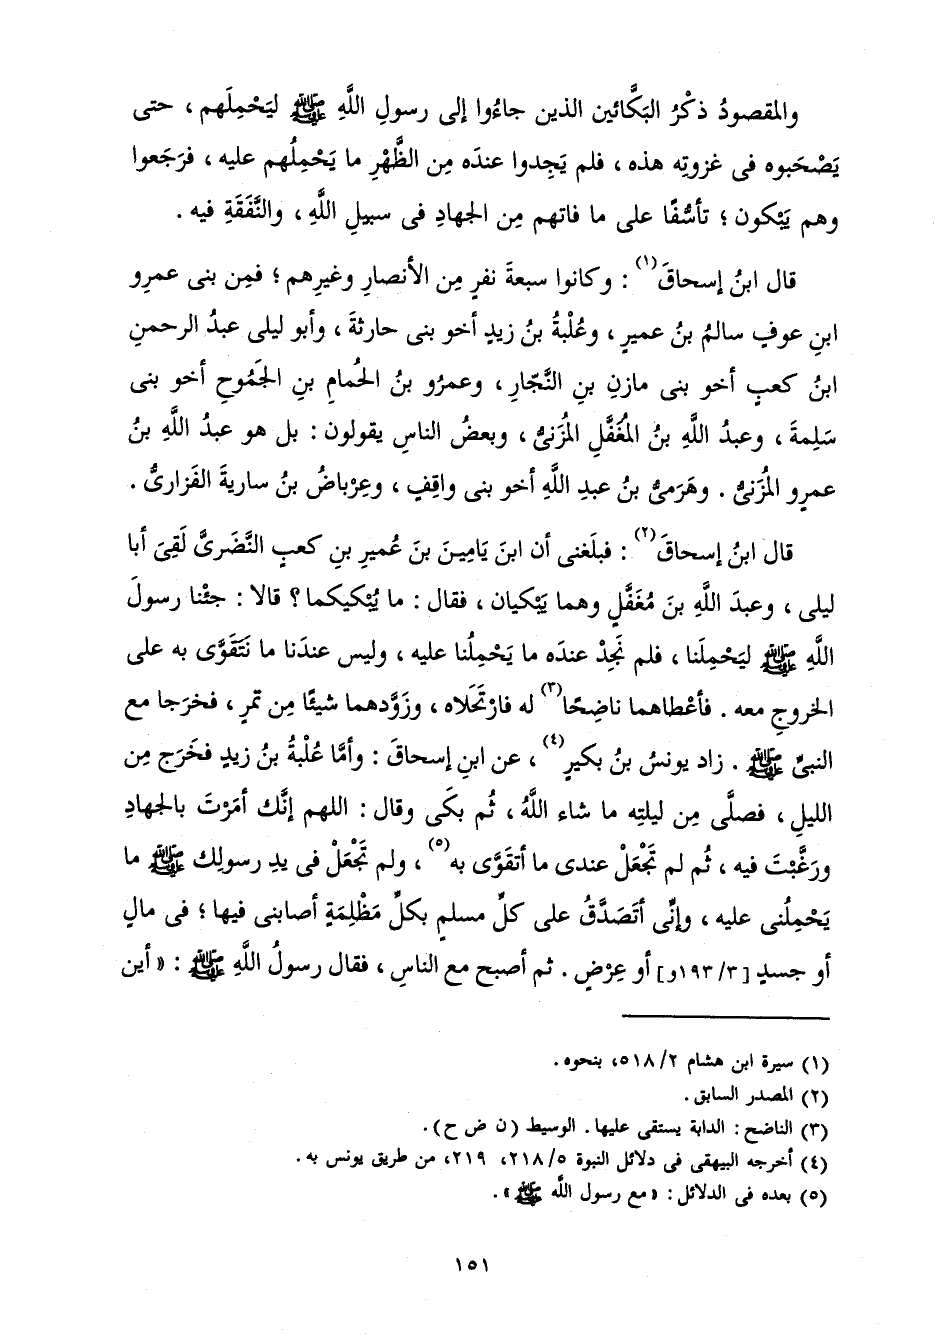 والمقصودُ ذكْرُ البَكَّائين الذين جاءُوا إلى رسولِ اللَّهِ ﷺ ليَحْمِلَهم ، حتى
يَصْحَبوه فى غزوتِه هذه ، فلم يَجِدوا عندَه مِن الظَّهْرِ ما يَحْمِلُهم عليه ، فرَجَعوا
وهم يَبْكون ؛ تأسُّفًا على ما فاتهم مِن الجهادِ فى سبيلِ اللَّهِ ، والنَّفَقَةِ فيه .
قال ابنُ إسحاقَ(١) : وكانوا سبعةَ نفرٍ مِن الأنصارِ وغيرِهم ؛ فمِن بنى عمرِو
ابنِ عوفٍ سالمُ بنُ عميرٍ ، وعُلْبةُ بنُ زيدٍ أخو بنى حارثةَ ، وأبو ليلى عبدُ الرحمنِ
ابنُ كعبٍ أخو بنى مازنِ بنِ النَّجّارِ ، وعمرُو بنُ الحُمامِ بنِ الجَموحِ أخو بنى
سَلِمةَ ، وعبدُ اللَّهِ بنُ المُغَفَّلِ المُزَنىُّ ، وبعضُ الناسِ يقولون : بل هو عبدُ اللَّهِ بنُ
عمرٍو المُزَنىُّ . وهَرَمىُّ بنُ عبدِ اللَّهِ أخو بنى واقِفٍ ، وعِرْباضُ بنُ ساريةَ الفَزارىُّ .
قال ابنُ إسحاقَ(٢) : فبلَغنى أن ابنَ يَامِينَ بنَ عُميرِ بنِ كعبٍ النَّضَرىَّ لَقِىَ أبا
ليلى ، وعبدَ اللَّهِ بنَ مُغَفَّلٍ وهما يَبْكيان ، فقال : ما يُبْكيكما ؟ قالا : جئْنا رسولَ
اللَّهِ ﷺ ليَحْمِلَنا ، فلم نَجِدْ عندَه ما يَحْمِلُنا عليه ، وليس عندَنا ما نَتَقَوَّى به على
الخروجِ معه . فأعْطاهما ناضِحًا(٣) له فارْتَحَلاه ، وزَوَّدهما شيئًا مِن تمرٍ ، فخرَجا مع
النبىِّ ﷺ . زاد يونسُ بنُ بكيرٍ(٤) ، عن ابنِ إسحاقَ : وأمَّا عُلْبةُ بنُ زيدٍ فخَرَج مِن
الليلِ ، فصلَّى مِن ليلتِه ما شاء اللَّهُ ، ثُم بكَى وقال : اللهم إنَّك أمَرْتَ بالجهادِ
ورَغَّبْتَ فيه ، ثُم لم تَجْعَلْ عندى ما أتقَوَّى به(٥) ، ولم تَجْعَلْ فى يدِ رسولِك ﷺ ما
يَحْمِلُنى عليه ، وإنِّى أتَصَدَّقُ على كلِّ مسلمٍ بكلِّ مَظْلِمَةٍ أصابنى فيها ؛ فى مالٍ
أو جسدٍ [١٩٣/٣و] أو عِرْضٍ . ثم أصبح مع الناسِ ، فقال رسولُ اللَّهِ ﷺ : « أين
(١) سيرة ابن هشام ٢/ ٥١٨، بنحوه .
(٢) المصدر السابق .
(٣) الناضح : الدابة يستقى عليها . الوسيط (ن ض ح) .
(٤) أخرجه البيهقى فى دلائل النبوة ٥/ ٢١٨، ٢١٩، من طريق يونس به .
(٥) بعده فى الدلائل : « مع رسول الله ﷺ » .
١٥١